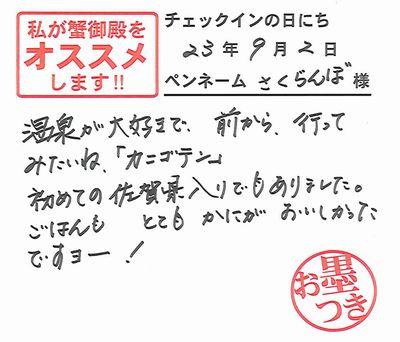 私が蟹御殿を
オススメ
します!!
チェックインの日にち
23年9月2日
ペンネーム さくらんぼ 様
温泉が大好きで、前から、行って
みたいね、「カニゴテン」
初めての佐賀県入りでもありました。
ごはんも とても かにが おいしかった
ですヨー!
お墨つき